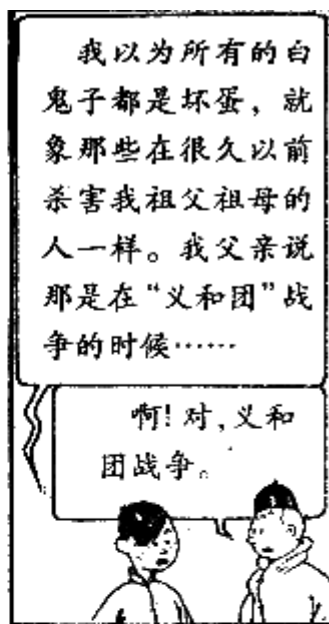 我以为所有的白
鬼子都是坏蛋，就
象那些在很久以前
杀害我祖父祖母的
人一样。我父亲说
那是在“义和团”战
争的时候……
啊！对，义和
团战争。